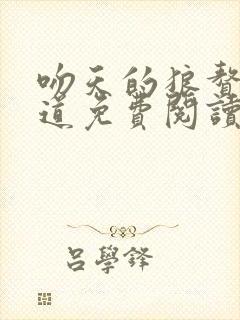 吻天的狼鳌
道免費閱讀
呂學鋒